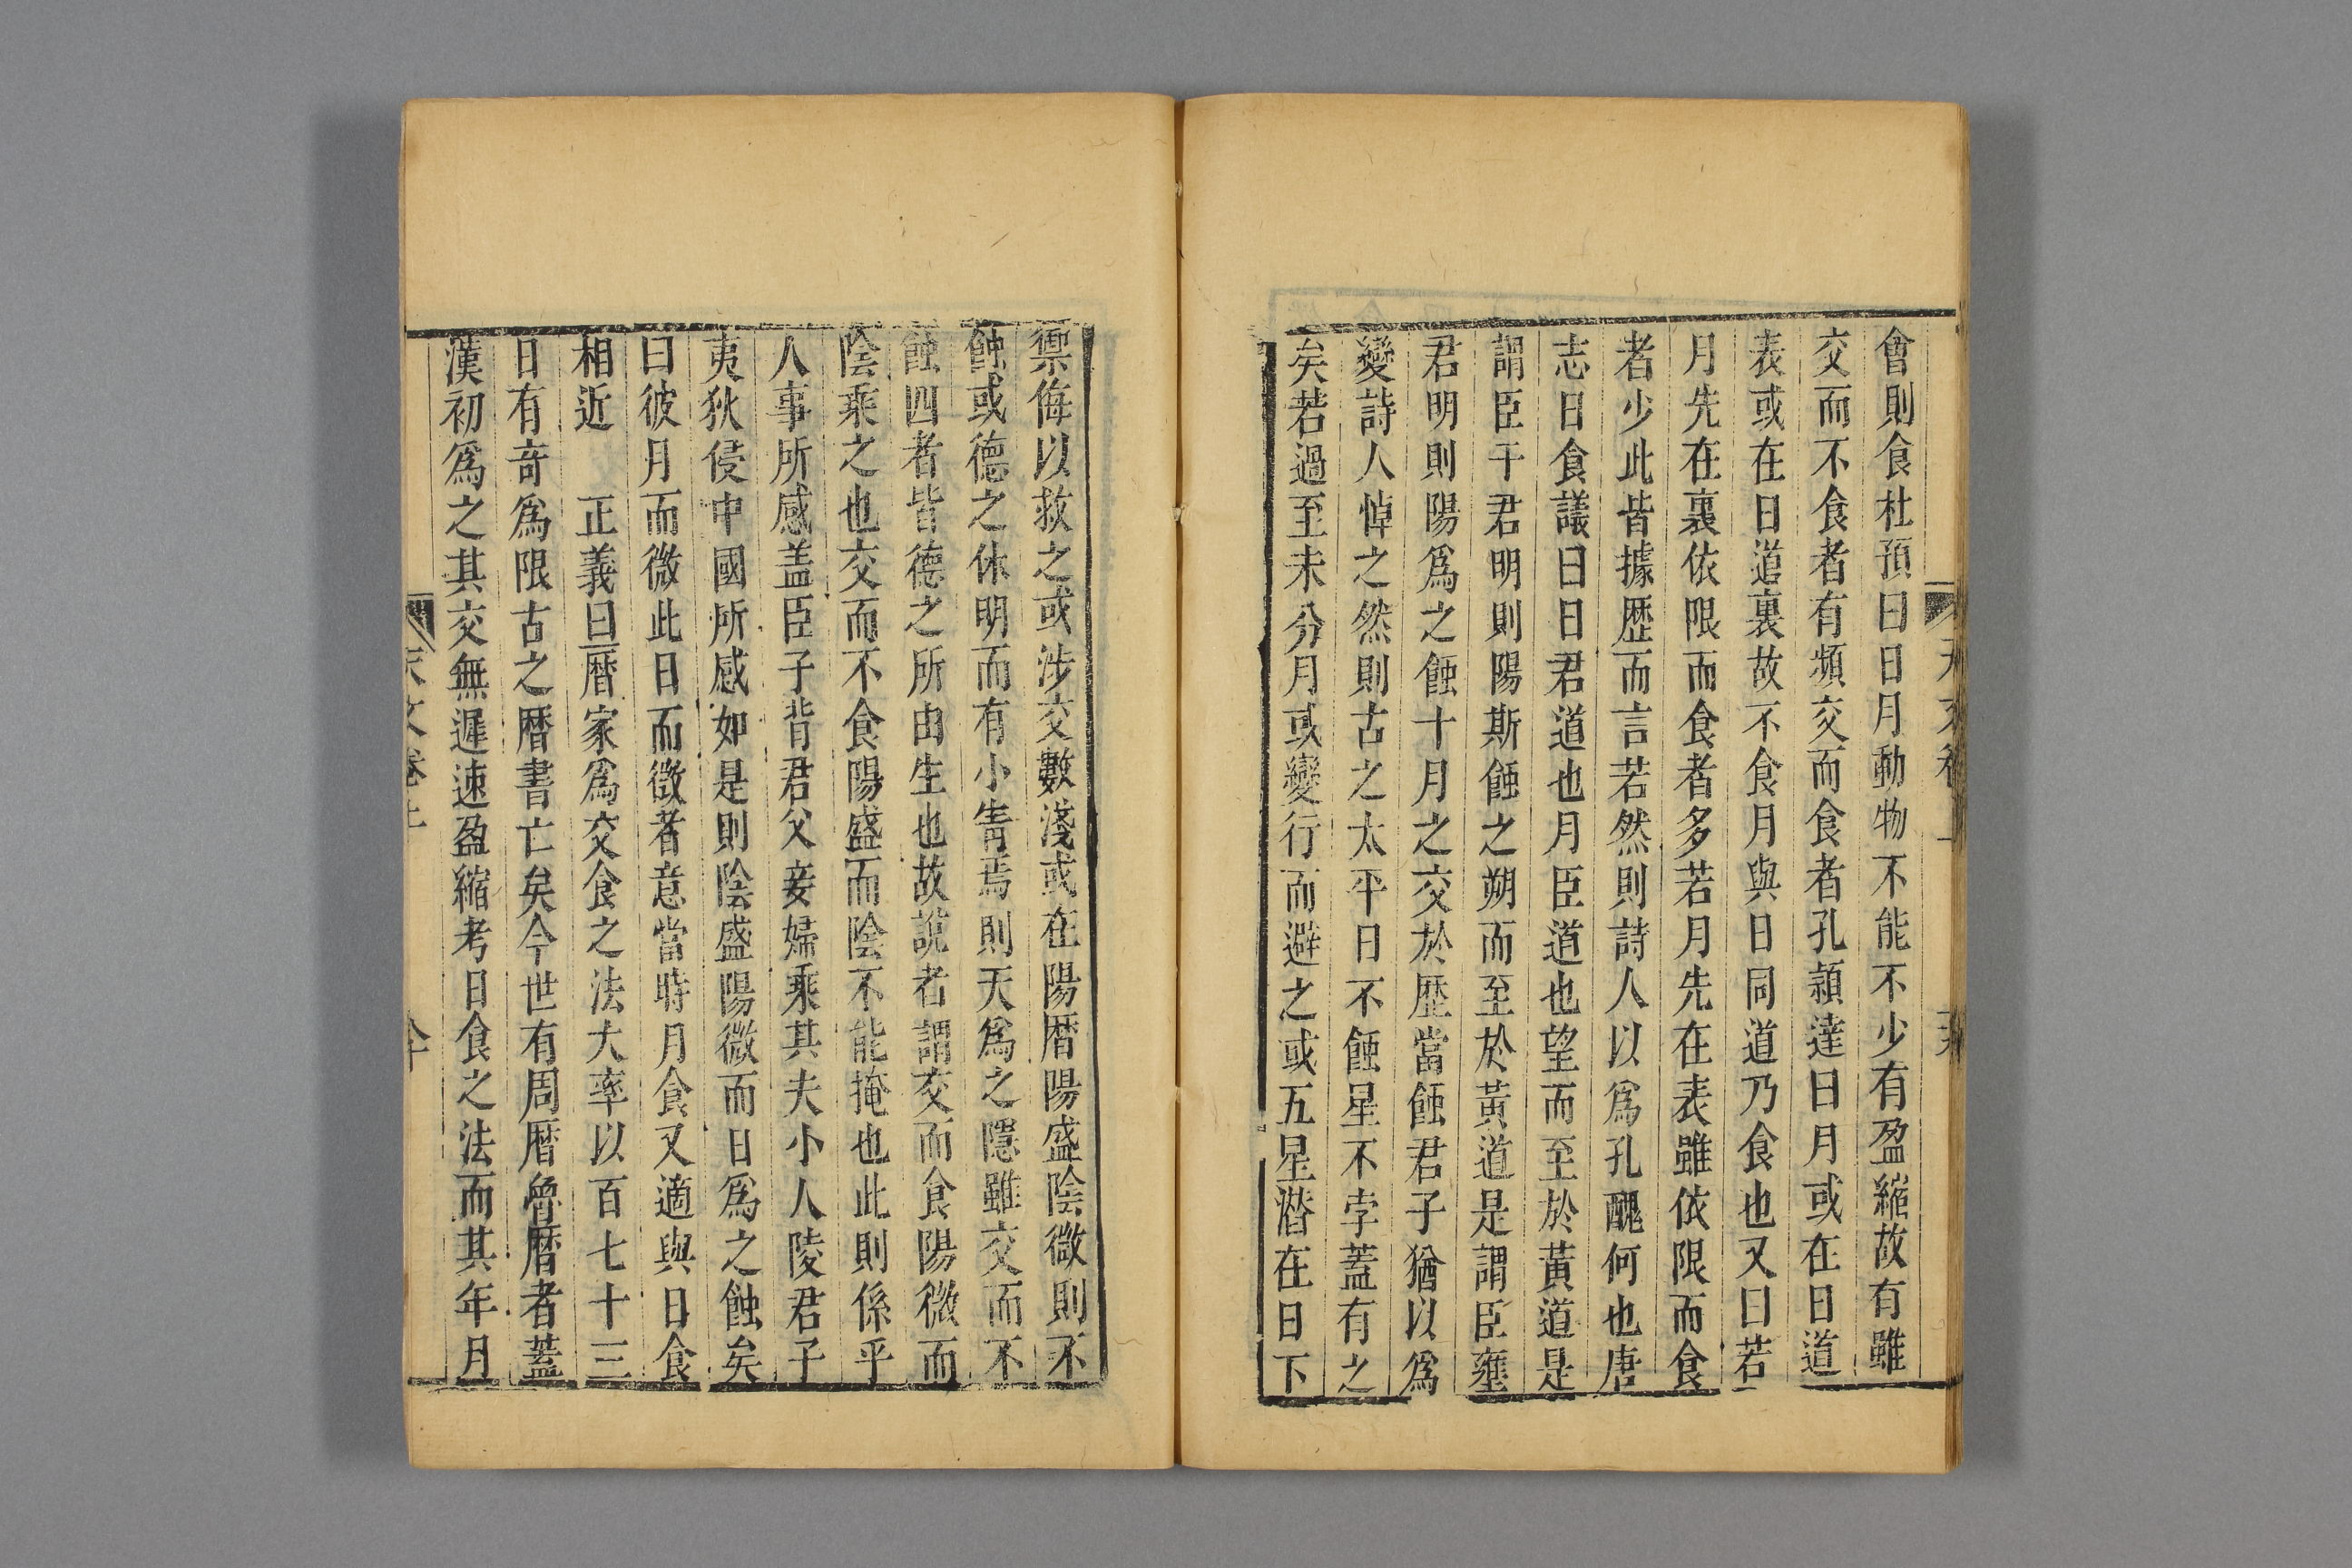 會則食杜預曰日月動物不能不少有盈縮故有雖
交而不食者有頻交而食者孔穎達曰月或在日道
表或在日道裏故不食月與日同道乃食也又曰若
月先在裏依限而食者多若月先在表雖依限而食
者少此皆據歷而言若然則詩人以爲孔醜何也唐
志日食議曰日君道也月臣道也望而至於黃道是
謂臣干君明則陽斯蝕之朔而至於黃道是謂臣壅
君明則陽爲之蝕十月之交於歷當蝕君子猶以爲
變詩人悼之然則古之太平日不蝕星不孛蓋有之
矣若過至未分月或變行而避之或五星潛在日下
禦侮以救之或涉交數淺或在陽曆陽盛陰微則不
蝕或德之休明而有小眚焉則天爲之隱雖交而不
蝕四者皆德之所由生也故說者謂交而食陽微而
陰乘之也交而不食陽盛而陰不能掩也此則係乎
人事所感盖臣子背君父妾婦乘其夫小人陵君子
夷狄侵中國所感如是則陰盛陽微而日爲之蝕矣
曰彼月而微此日而微者意當時月食又適與日食
相近　正義曰曆家爲交食之法大率以百七十三
日有奇爲限古之曆書亡矣今世有周曆魯曆者蓋
漢初爲之其交無遲速盈縮考日食之法而其年月
天文卷上